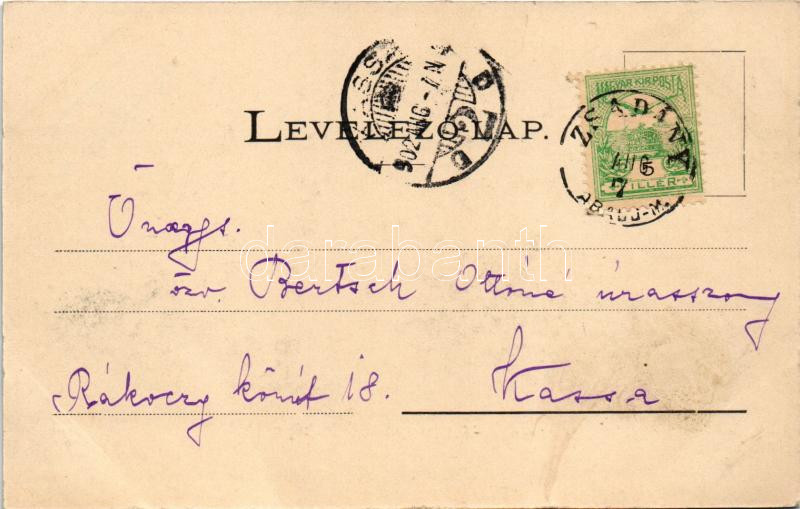 LEVELEZŐ-LAP.
MAGYAR KIR. POSTA
FILLÉR
ZSADÁNY
AUG
5
7
ABAUJ-M.
KASSA
902 AUG - 7 N
D
Önagys.
özv. Bertsch Ottóné úrasszony
Rákoczy körút 18. Kassa
darabanth